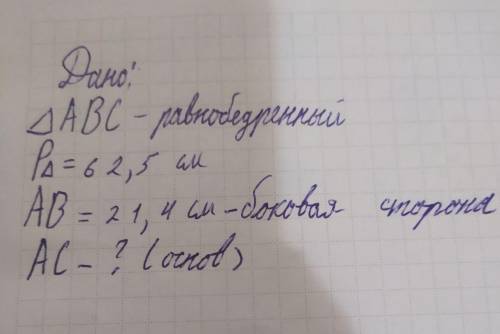 Дано:
△ABC - равнобедренный
P△ = 62,5 см
AB = 21,4 см - боковая сторона
AC - ? (основ)